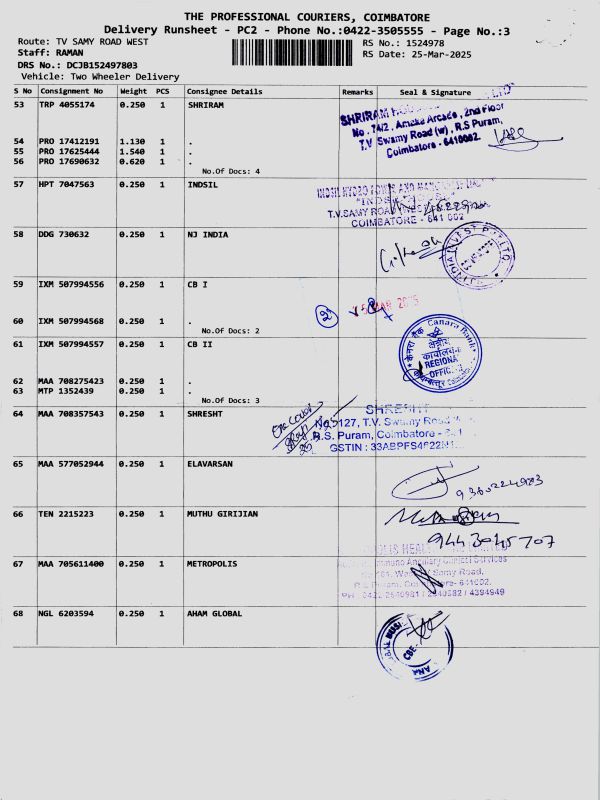 THE PROFESSIONAL COURIERS, COIMBATORE
Delivery Runsheet - PC2 - Phone No.:0422-3505555 - Page No.:3
Route: TV SAMY ROAD WEST
RS No.: 1524978
Staff: RAMAN
RS Date: 25-Mar-2025
DRS No.: DCJB152497803
Vehicle: Two Wheeler Delivery
S No Consignment No Weight PCS Consignee Details Remarks Seal & Signature
53 TRP 4055174 0.250 1 SHRIRAM
SHRIRAM
No. 74/2, Ameke Arcade, 2nd Floor
T.V. Swamy Road (w), R.S Puram,
Coimbatore - 6410002.
54 PRO 17412191 1.130 1 .
55 PRO 17625444 1.540 1 .
56 PRO 17690632 0.620 1 .
No.Of Docs: 4
57 HPT 7047563 0.250 1 INDSIL
INDSIL HYDRO POWER AND
"INDS
T.V.SAMY ROAD
COIMBATORE - 641 002
58 DDG 730632 0.250 1 NJ INDIA
59 IXM 507994556 0.250 1 CB I
60 IXM 507994568 0.250 1 .
No.Of Docs: 2
61 IXM 507994557 0.250 1 CB II
केनरा बैंक Canara Bank
क्षेत्रीय
कार्यालय
REGIONAL
OFFICE
62 MAA 708275423 0.250 1 .
63 MTP 1352439 0.250 1 .
No.Of Docs: 3
64 MAA 708357543 0.250 1 SHRESHT
SHRESHT
No.127, T.V. Swamy Road
R.S. Puram, Coimbatore -
GSTIN : 33ABPFS4622
65 MAA 577052944 0.250 1 ELAVARSAN
9360224983
66 TEN 2215223 0.250 1 MUTHU GIRIJIAN
9443045707
67 MAA 705611400 0.250 1 METROPOLIS
Samy Road,
R.S. Puram, 641002.
PH : 0422 2540981 / 2540582 / 4394949
68 NGL 6203594 0.250 1 AHAM GLOBAL
CBE